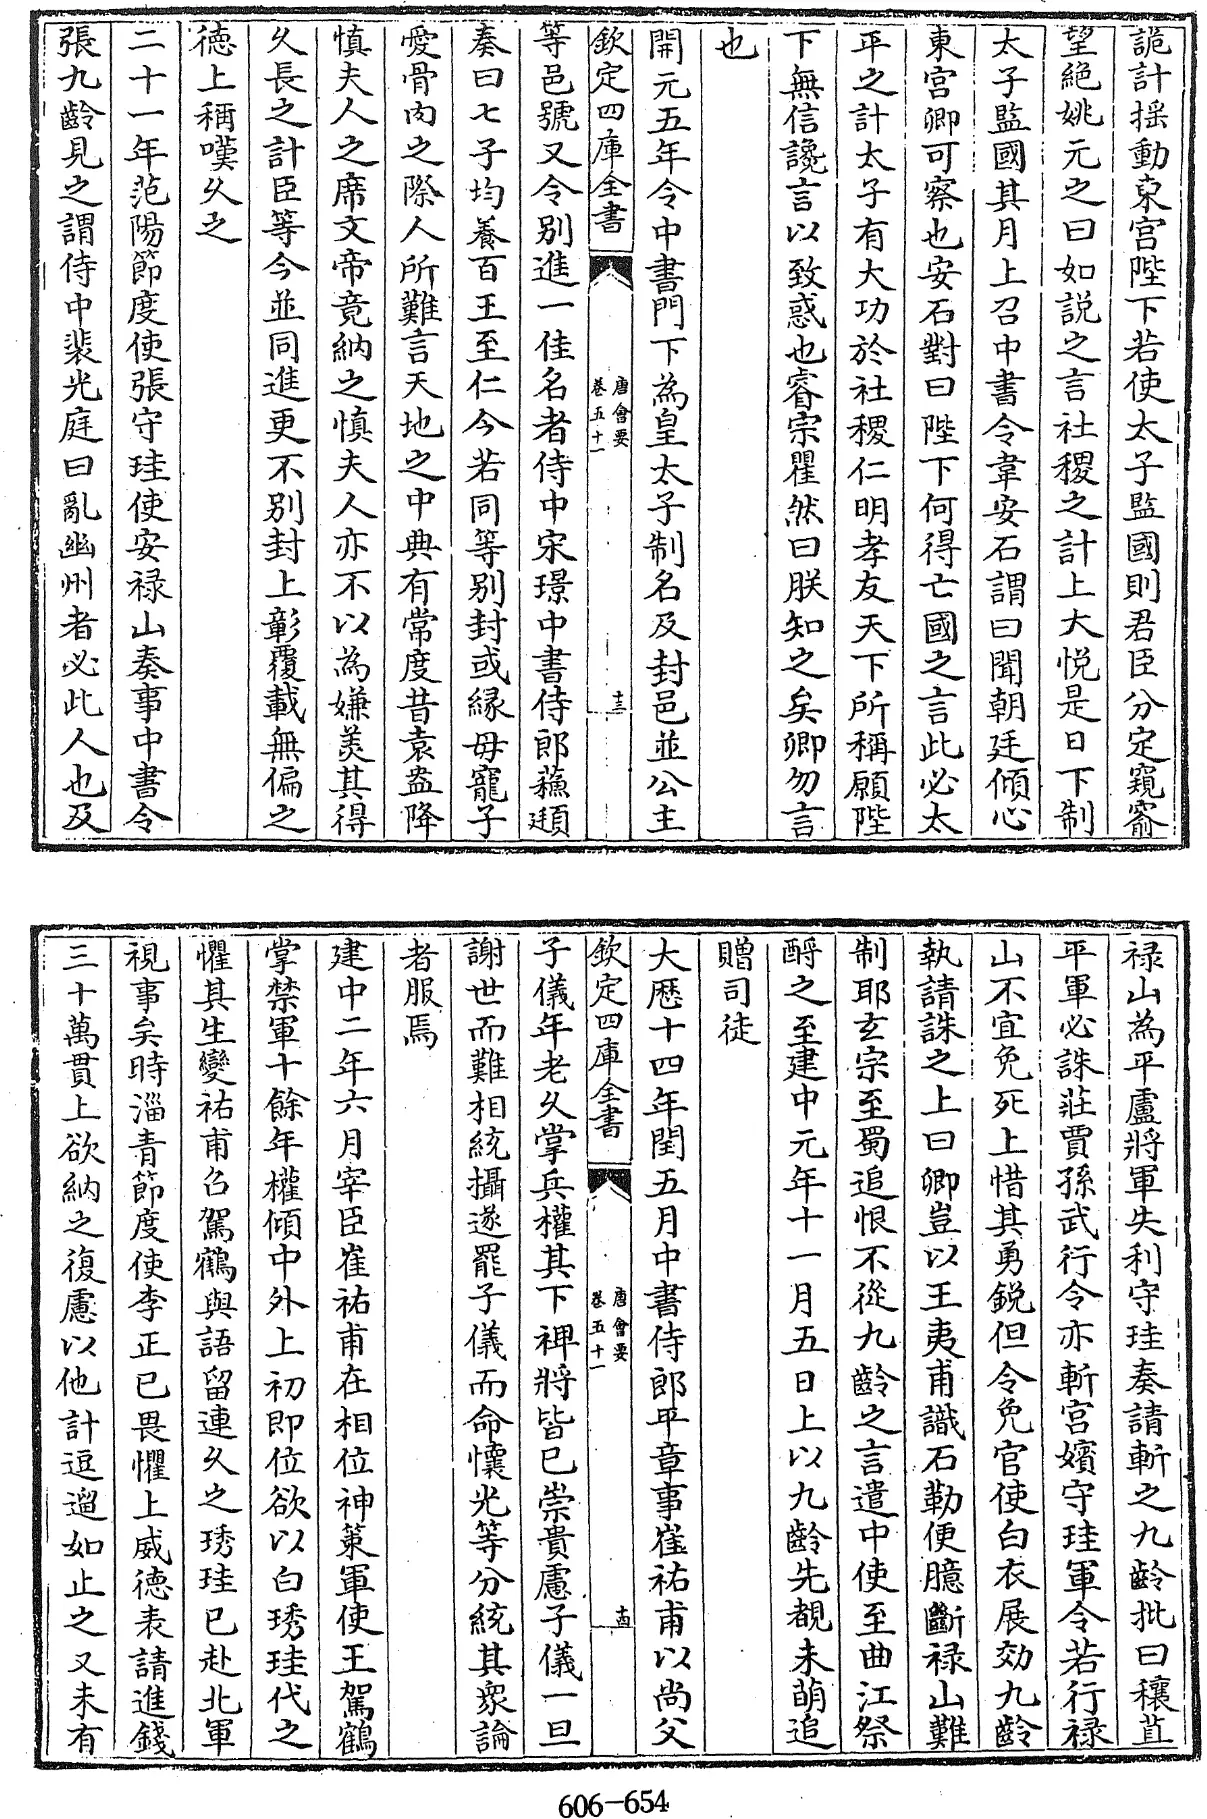 詭計揺動東宮陛下若使太子監國則君臣分定窺窬
望絶姚元之曰如説之言社稷之計上大悦是日下制
太子監國其月上召中書令韋安石謂曰聞朝廷傾心
東宮卿可察也安石對曰陛下何得亡國之言此必太
平之計太子有大功於社稷仁明孝友天下所稱願陛
下無信讒言以致惑也睿宗瞿然曰朕知之矣卿勿言
也
開元五年令中書門下為皇太子制名及封邑並公主
欽定四庫全書
唐會要
卷五十一
十三
等邑號又令别進一佳名者侍中宋璟中書侍郎蘓頲
奏曰七子均養百王至仁今若同等别封或縁母寵子
愛骨肉之際人所難言天地之中典有常度昔袁盎降
慎夫人之席文帝竟納之慎夫人亦不以為嫌美其得
久長之計臣等今並同進更不别封上彰覆載無偏之
徳上稱嘆久之
二十一年范陽節度使張守珪使安禄山奏事中書令
張九齡見之謂侍中裴光庭曰亂幽州者必此人也及
禄山為平盧將軍失利守珪奏請斬之九齡批曰穰苴
平軍必誅莊賈孫武行令亦斬宫嬪守珪軍令若行禄
山不宜免死上惜其勇鋭但令免官使白衣展効九齡
執請誅之上曰卿豈以王夷甫識石勒便臆斷禄山難
制耶玄宗至蜀追恨不從九齡之言遣中使至曲江祭
酹之至建中元年十一月五日上以九齡先覩未萌追
贈司徒
大厯十四年閏五月中書侍郎平章事崔祐甫以尚父
欽定四庫全書
唐會要
卷五十一
十四
子儀年老久掌兵權其下裨將皆已崇貴慮子儀一旦
謝世而難相統攝遂罷子儀而命懷光等分統其衆論
者服焉
建中二年六月宰臣崔祐甫在相位神策軍使王駕鶴
掌禁軍十餘年權傾中外上初即位欲以白琇珪代之
懼其生變祐甫召駕鶴與語留連久之琇珪已赴北軍
視事矣時淄青節度使李正已畏懼上威德表請進錢
三十萬貫上欲納之復慮以他計逗遛如止之又未有
606-654